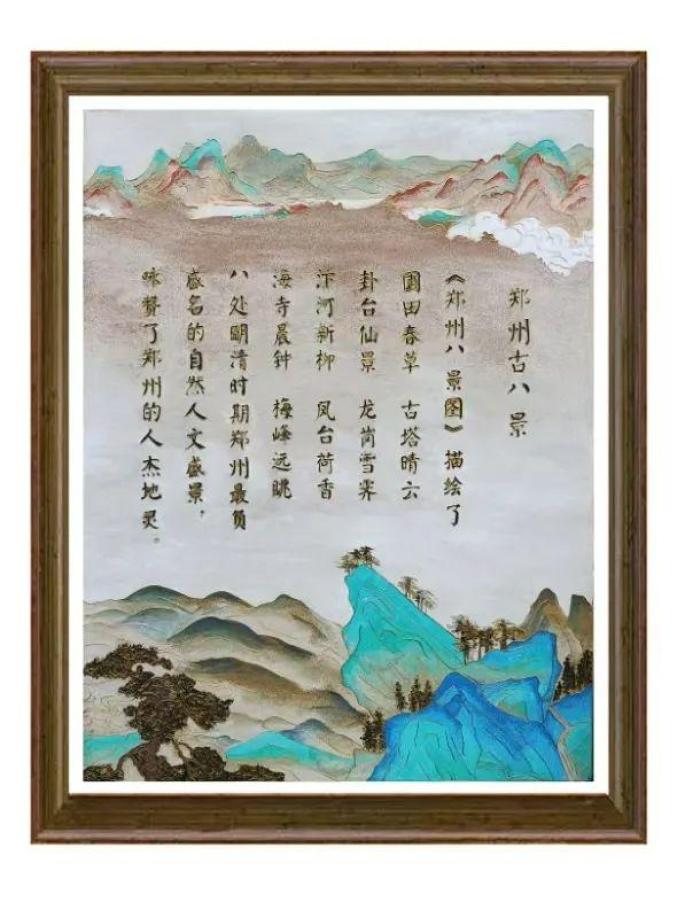 郑州古八景
《郑州八景图》描绘了
圃田春草 古塔晴云
卦台仙景 龙岗雪霁
汴河新柳 凤台荷香
海寺晨钟 梅峰远眺
八处明清时期郑州最负
盛名的自然人文盛景,
咏赞了郑州的人杰地灵。